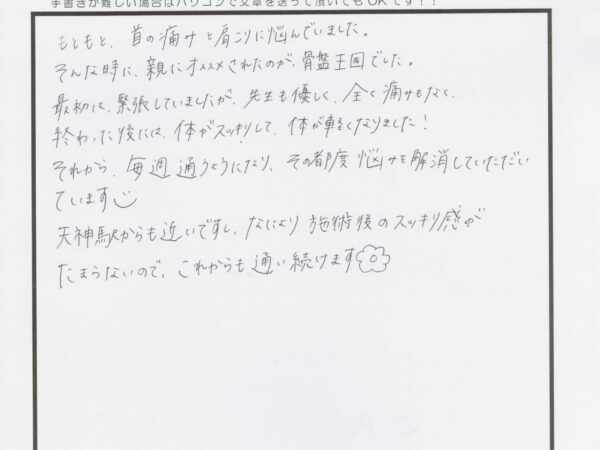 手書きが難しい場合はパソコンで文章を送って頂いてもOKです！！
もともと、首の痛みと肩こりに悩んでいました。
そんな時に、親にオススメされたのが、骨盤王国でした。
最初は、緊張していましたが、先生も優しく、全く痛みもなく、
終わった後には、体がスッキリして、体が軽くなりました！
それから、毎週通うようになり、その都度悩みを解消していただい
ています
天神駅からも近いですし、なにより施術後のスッキリ感が
たまらないので、これからも通い続けます